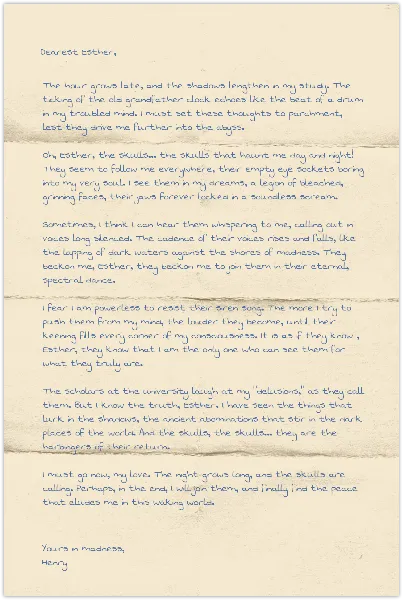 Dearest Esther,
The hour grows late, and the shadows lengthen in my study. The
ticking of the old grandfather clock echoes like the beat of a drum
in my troubled mind. I must set these thoughts to parchment,
lest they drive me further into the abyss.
Oh, Esther, the skulls... the skulls that haunt me day and night!
They seem to follow me everywhere, their empty eye sockets boring
into my very soul. I see them in my dreams, a legion of bleached,
grinning faces, their jaws forever locked in a soundless scream.
Sometimes, I think I can hear them whispering to me, calling out in
voices long silenced. The cadence of their voices rises and falls, like
the lapping of dark waters against the shores of madness. They
beckon me, Esther, they beckon me to join them in their eternal,
spectral dance.
I fear I am powerless to resist their siren song. The more I try to
push them from my mind, the louder they become, until their
keening fills every corner of my consciousness. It is as if they know,
Esther, they know that I am the only one who can see them for
what they truly are.
The scholars at the university laugh at my "delusions," as they call
them. But I know the truth, Esther. I have seen the things that
lurk in the shadows, the ancient abominations that stir in the dark
places of the world. And the skulls, the skulls... they are the
harbingers of their return.
I must go now, my love. The night grows long, and the skulls are
calling. Perhaps, in the end, I will join them, and finally find the peace
that eludes me in this waking world.
Yours in madness,
Henry